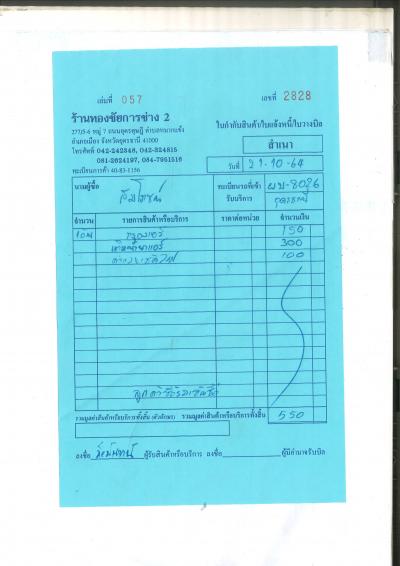 เล่มที่ 057
เลขที่ 2828
ร้านทองชัยการช่าง 2
277/5-6 หมู่ 7 ถนนอุดรดุษฎี ตำบลหมากแข้ง
อำเภอเมือง จังหวัดอุดรธานี 41000
โทรศัพท์ 042-242848, 042-324815
081-2624197, 084-7951516
ทะเบียนการค้า 40-83-1156
ใบกำกับสินค้า/ใบแจ้งหนี้/ใบวางบิล
สำเนา
วันที่ 21-10-64
นามผู้ซื้อ
ทะเบียนรถที่เข้ารับบริการ ผบ-8026 อุดรธานี
จำนวน รายการสินค้าหรือบริการ ราคาต่อหน่วย จำนวนเงิน
150
300
100
รวมมูลค่าสินค้าหรือบริการทั้งสิ้น (ตัวอักษร) รวมมูลค่าสินค้าหรือบริการทั้งสิ้น 550
ลงชื่อ ผู้รับสินค้าหรือบริการ ลงชื่อ ผู้มีอำนาจรับบิล